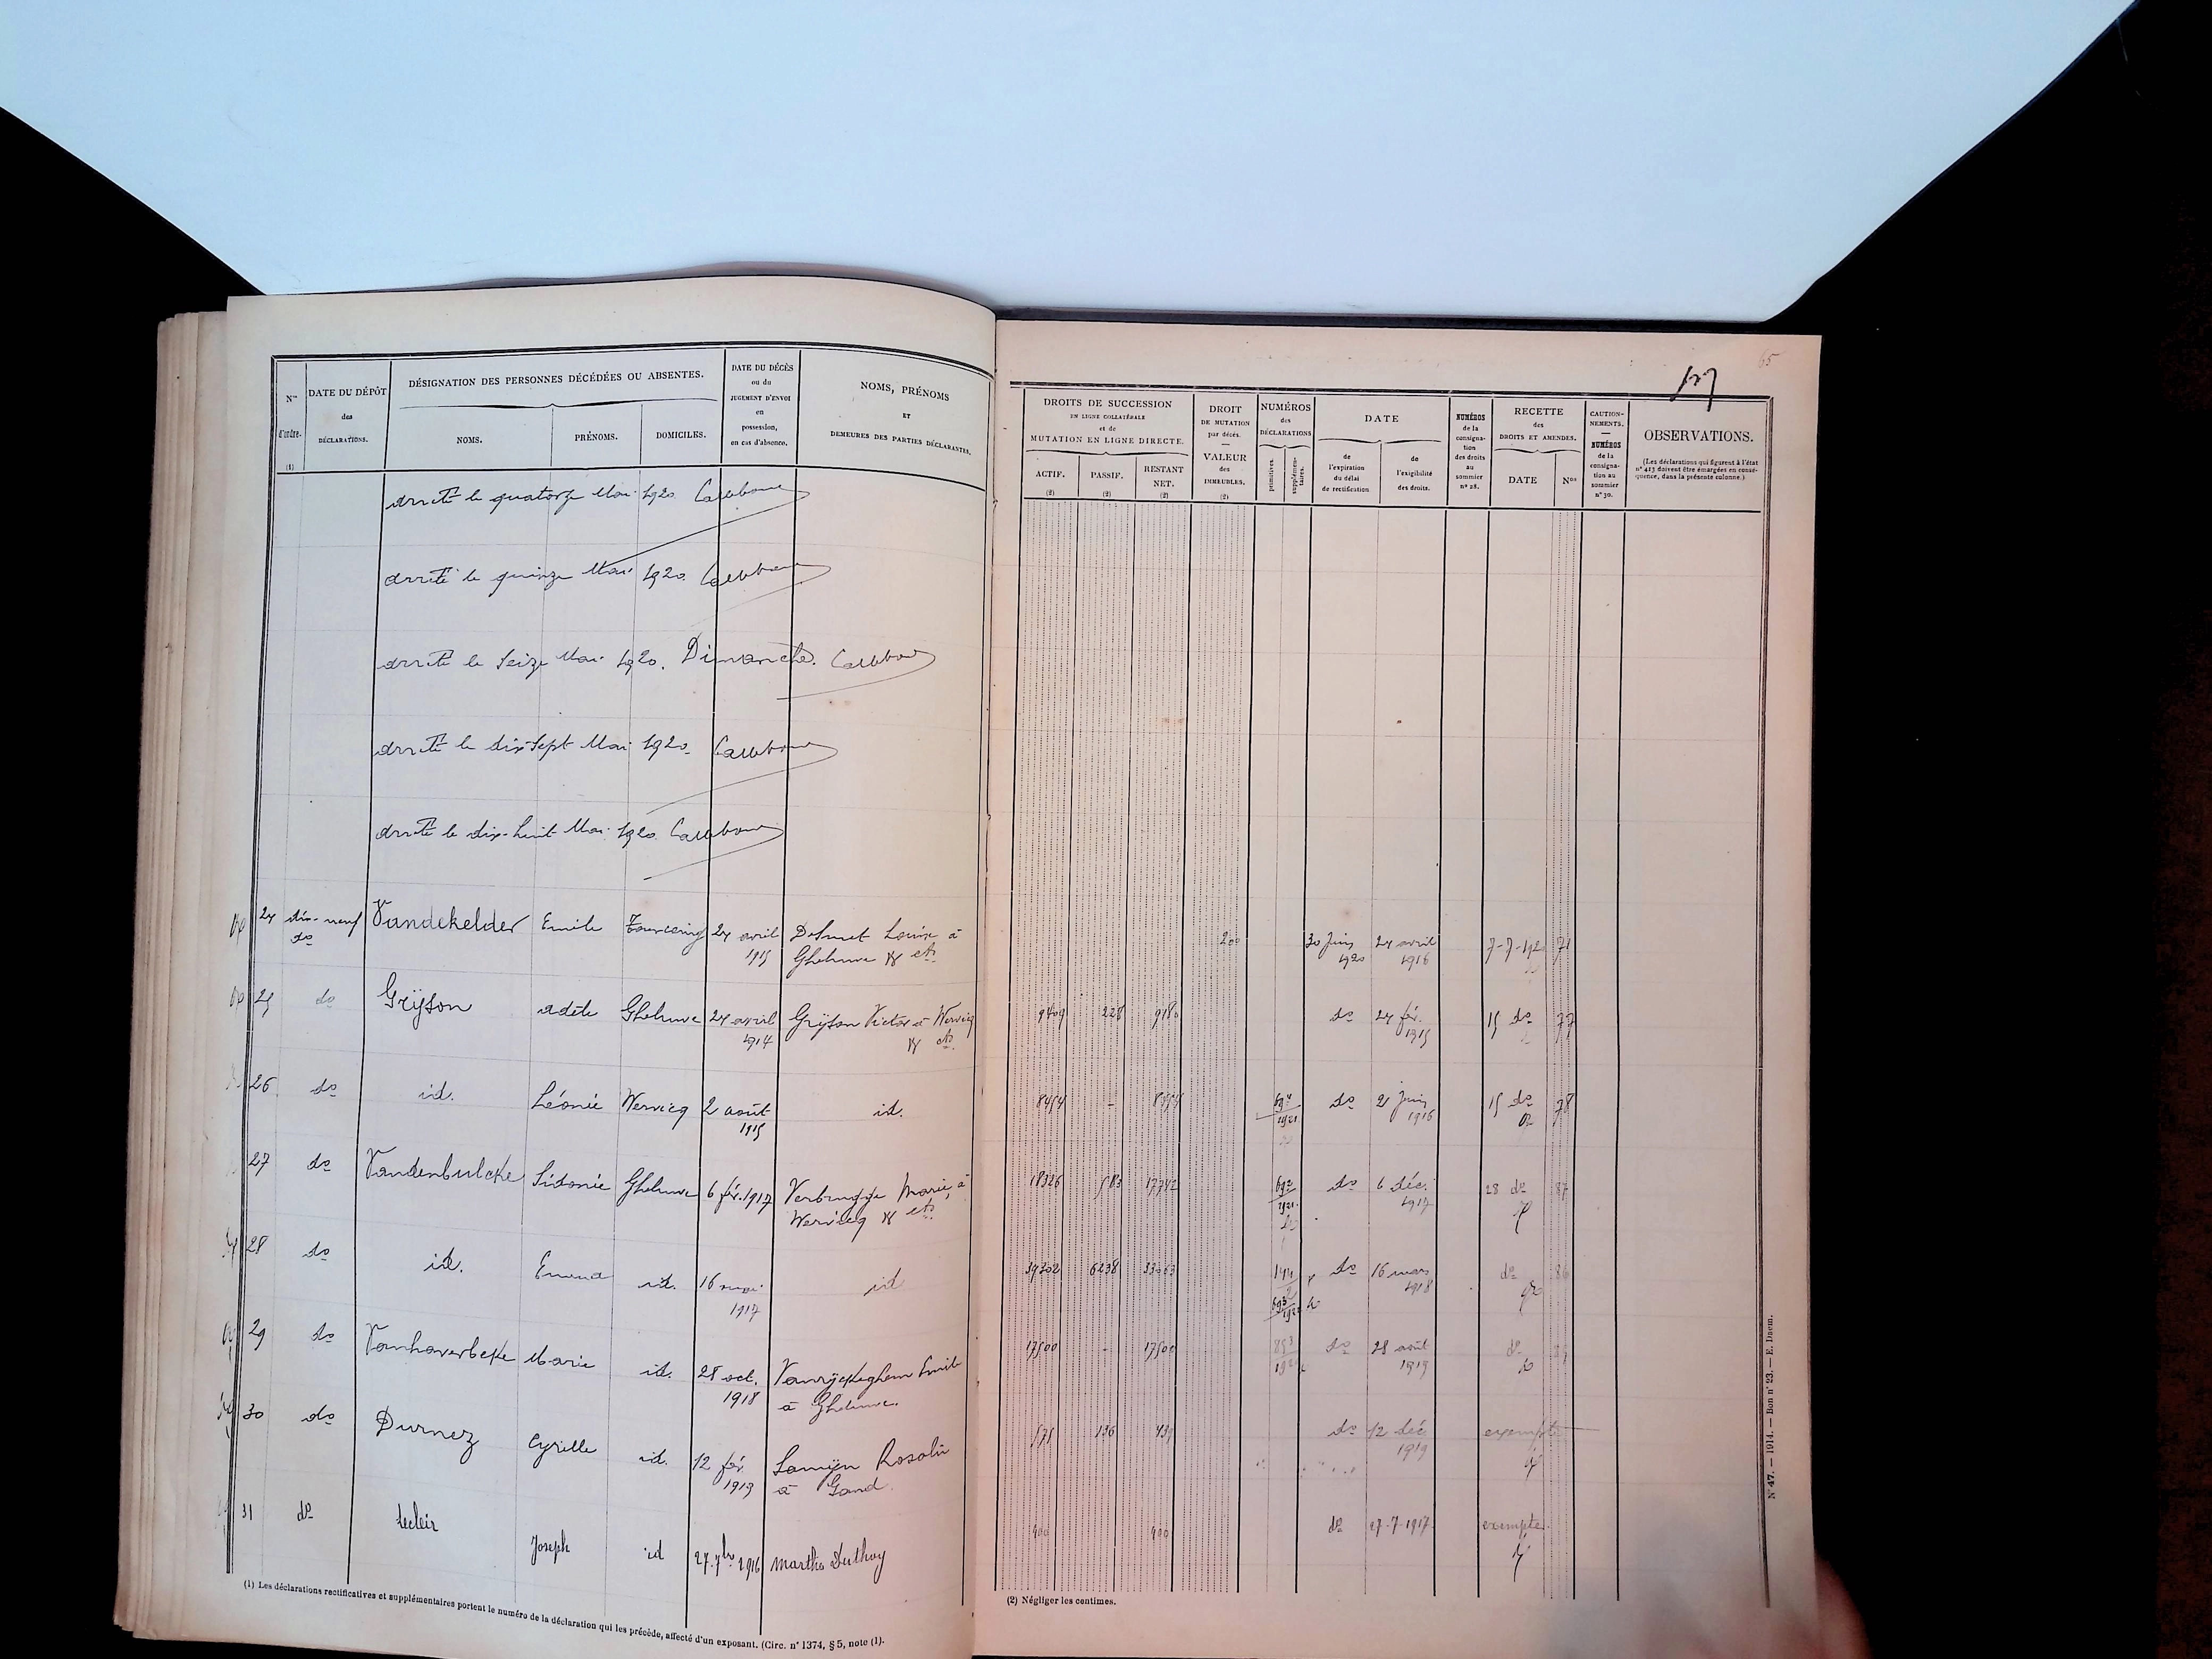 65
N°s d'ordre. (1)
DATE DU DÉPÔT des DÉCLARATIONS.
DÉSIGNATION DES PERSONNES DÉCÉDÉES OU ABSENTES.
NOMS. PRÉNOMS. DOMICILES.
DATE DU DÉCÈS ou du JUGEMENT D'ENVOI en possession, en cas d'absence.
NOMS, PRÉNOMS ET DEMEURES DES PARTIES DÉCLARANTES.
arrêté le quatorze Mai 1920
arrêté le quinze Mai 1920
arrêté le seize Mai 1920. Dimanche.
arrêté le dix-sept Mai 1920
arrêté le dix-huit Mai 1920
24 dix-neuf do Vandekelder Emile Tourcoing 24 avril 1915 Desmet Louise à Gheluwe & cts
25 do Grÿson Adèle Gheluwe 24 avril 1914 Grÿson Victor à Wervicq & cts
26 do id. Léonie Wervicq 2 août 1915 id.
27 do Vandenbulcke Sidonie Gheluwe 6 fév. 1917 Verbrugge Marie, à Wervicq & cts
28 do id. Emma id. 16 mai 1917 id
29 do Vanhaverbeke Marie id. 28 oct. 1918 Vanryckeghem Emile à Gheluwe.
30 do Durnez Cyrille id. 12 fév. 1919 Samÿn Rosalie à Gand
31 do Leclair Joseph id 27.7bre 1916 Martha Duthoy
(1) Les déclarations rectificatives et supplémentaires portent le numéro de la déclaration qui les précède, affecté d'un exposant. (Circ. n° 1374, § 5, note (1).
DROITS DE SUCCESSION EN LIGNE COLLATÉRALE et de MUTATION EN LIGNE DIRECTE.
ACTIF. (2) PASSIF. (2) RESTANT NET. (2)
DROIT DE MUTATION par décès. — VALEUR des IMMEUBLES. (2)
NUMÉROS des DÉCLARATIONS
primitives. supplémentaires.
DATE
de l'expiration du délai de rectification
de l'exigibilité des droits.
NUMÉROS de la consignation des droits au sommier n° 28.
RECETTE des DROITS ET AMENDES.
DATE Nos
CAUTIONNEMENTS. — NUMÉROS de la consignation au sommier n° 30.
OBSERVATIONS.
(Les déclarations qui figurent à l'état n° 413 doivent être émargées en conséquence, dans la présente colonne.)
200 30 Juin 1920 24 avril 1916 7-7-1920 71
9409 228 9180 do 24 fév. 1915 15 do 77
8454 - 8454 do 2 Juin 1916 15 do 78
18326 583 17742 do 6 déc. 1917 28 do 87
39302 6238 33063 do 16 mars 1918 do 86
17500 - 17500 do 28 août 1919 do
575 136 439 do 12 déc 1919 exempte
400 400 do 27-7-1917 exempte.
(2) Négliger les centimes.
N° 47. — 1914. — Bon n° 23. — E. Daem.